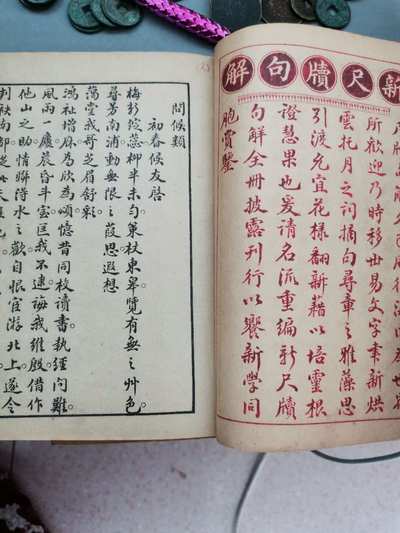 新尺牘句解
所歡迎乃時移世易文字事新烘
雲托月之詞摘句尋章之雅藻思
引渡尤宜花樣翻新藉以培靈根
證慧果也爰請名流重編新尺牘
句解全冊披露刊行以饗新學同
胞賞鑒
問候類
初春候友啓
梅彭破蕊柳半未勻策杖東皋覽有無之艸色。
尋芳南浦動無限之葭思遐想
藹堂我哥芝眉舒彩。
鴻祉增庥為欣為頌憶昔同枚讀書執經問難。
風雨一廬晨昏斗室匡我不逮誨我維殷借作
他山之助情聯淂水之歡自恨宦游北上遂令